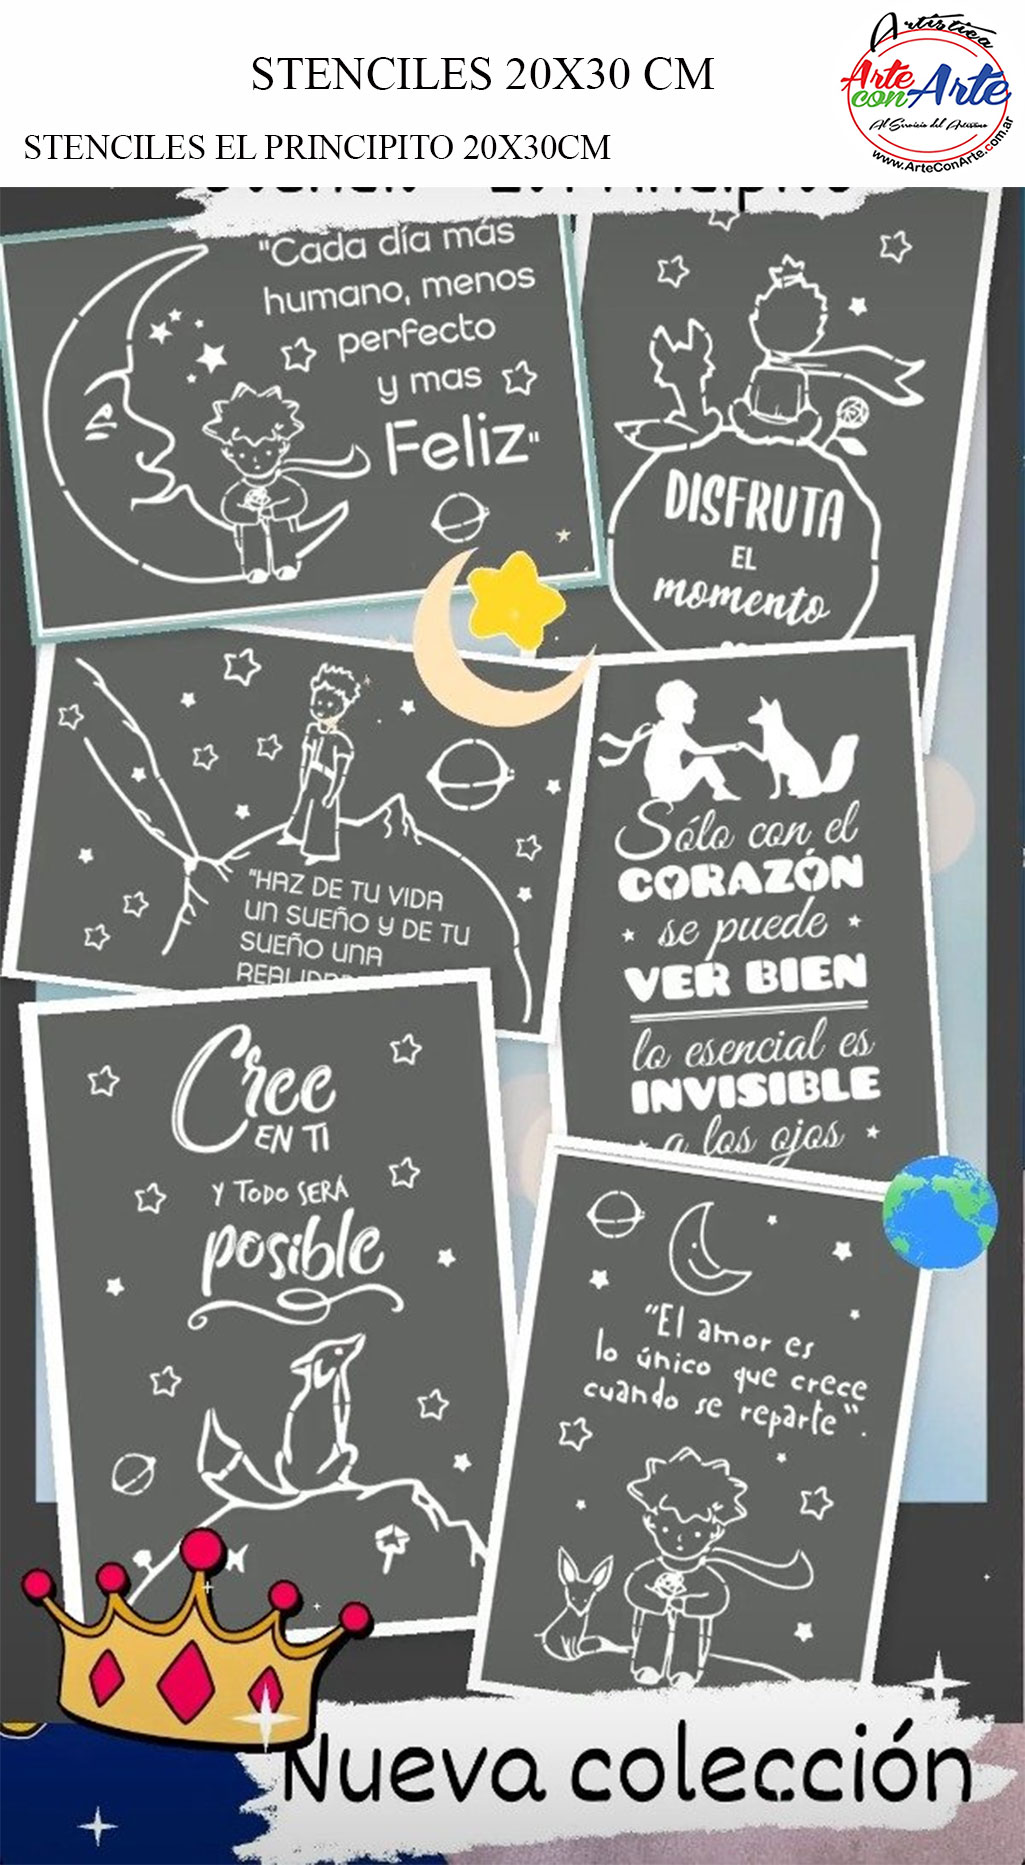 STENCILES 20X30 CM
STENCILES EL PRINCIPITO 20X30CM
Artística
Arte
con Arte
Al Servicio del Artesano
www.ArteConArte.com.ar
"Cada día más
humano, menos
perfecto
y mas
Feliz"
DISFRUTA
EL
momento
"HAZ DE TU VIDA
UN SUEÑO Y DE TU
SUEÑO UNA
Sólo con el
CORAZÓN
se puede
VER BIEN
lo esencial es
INVISIBLE
a los ojos
Cree
EN TI
Y TODO SERÁ
posible
"El amor es
lo único que crece
cuando se reparte".
Nueva colección